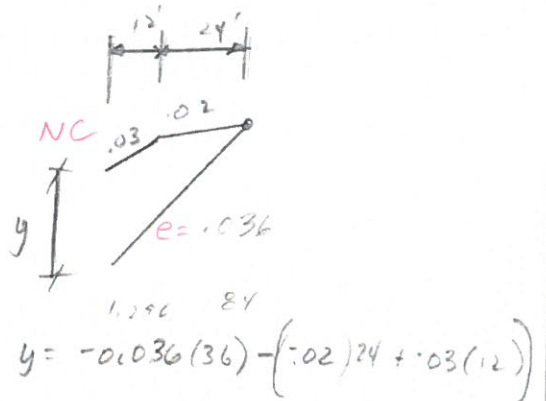 12' 24'
NC .03 .02
y
e= .036
1.296 84
y= -0.036(36) - (-.02)24 + .03(12))